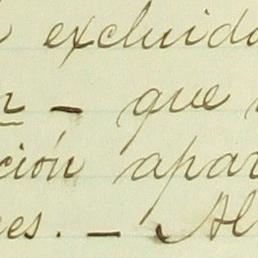 excluida
– que
ción apar
es. – Al